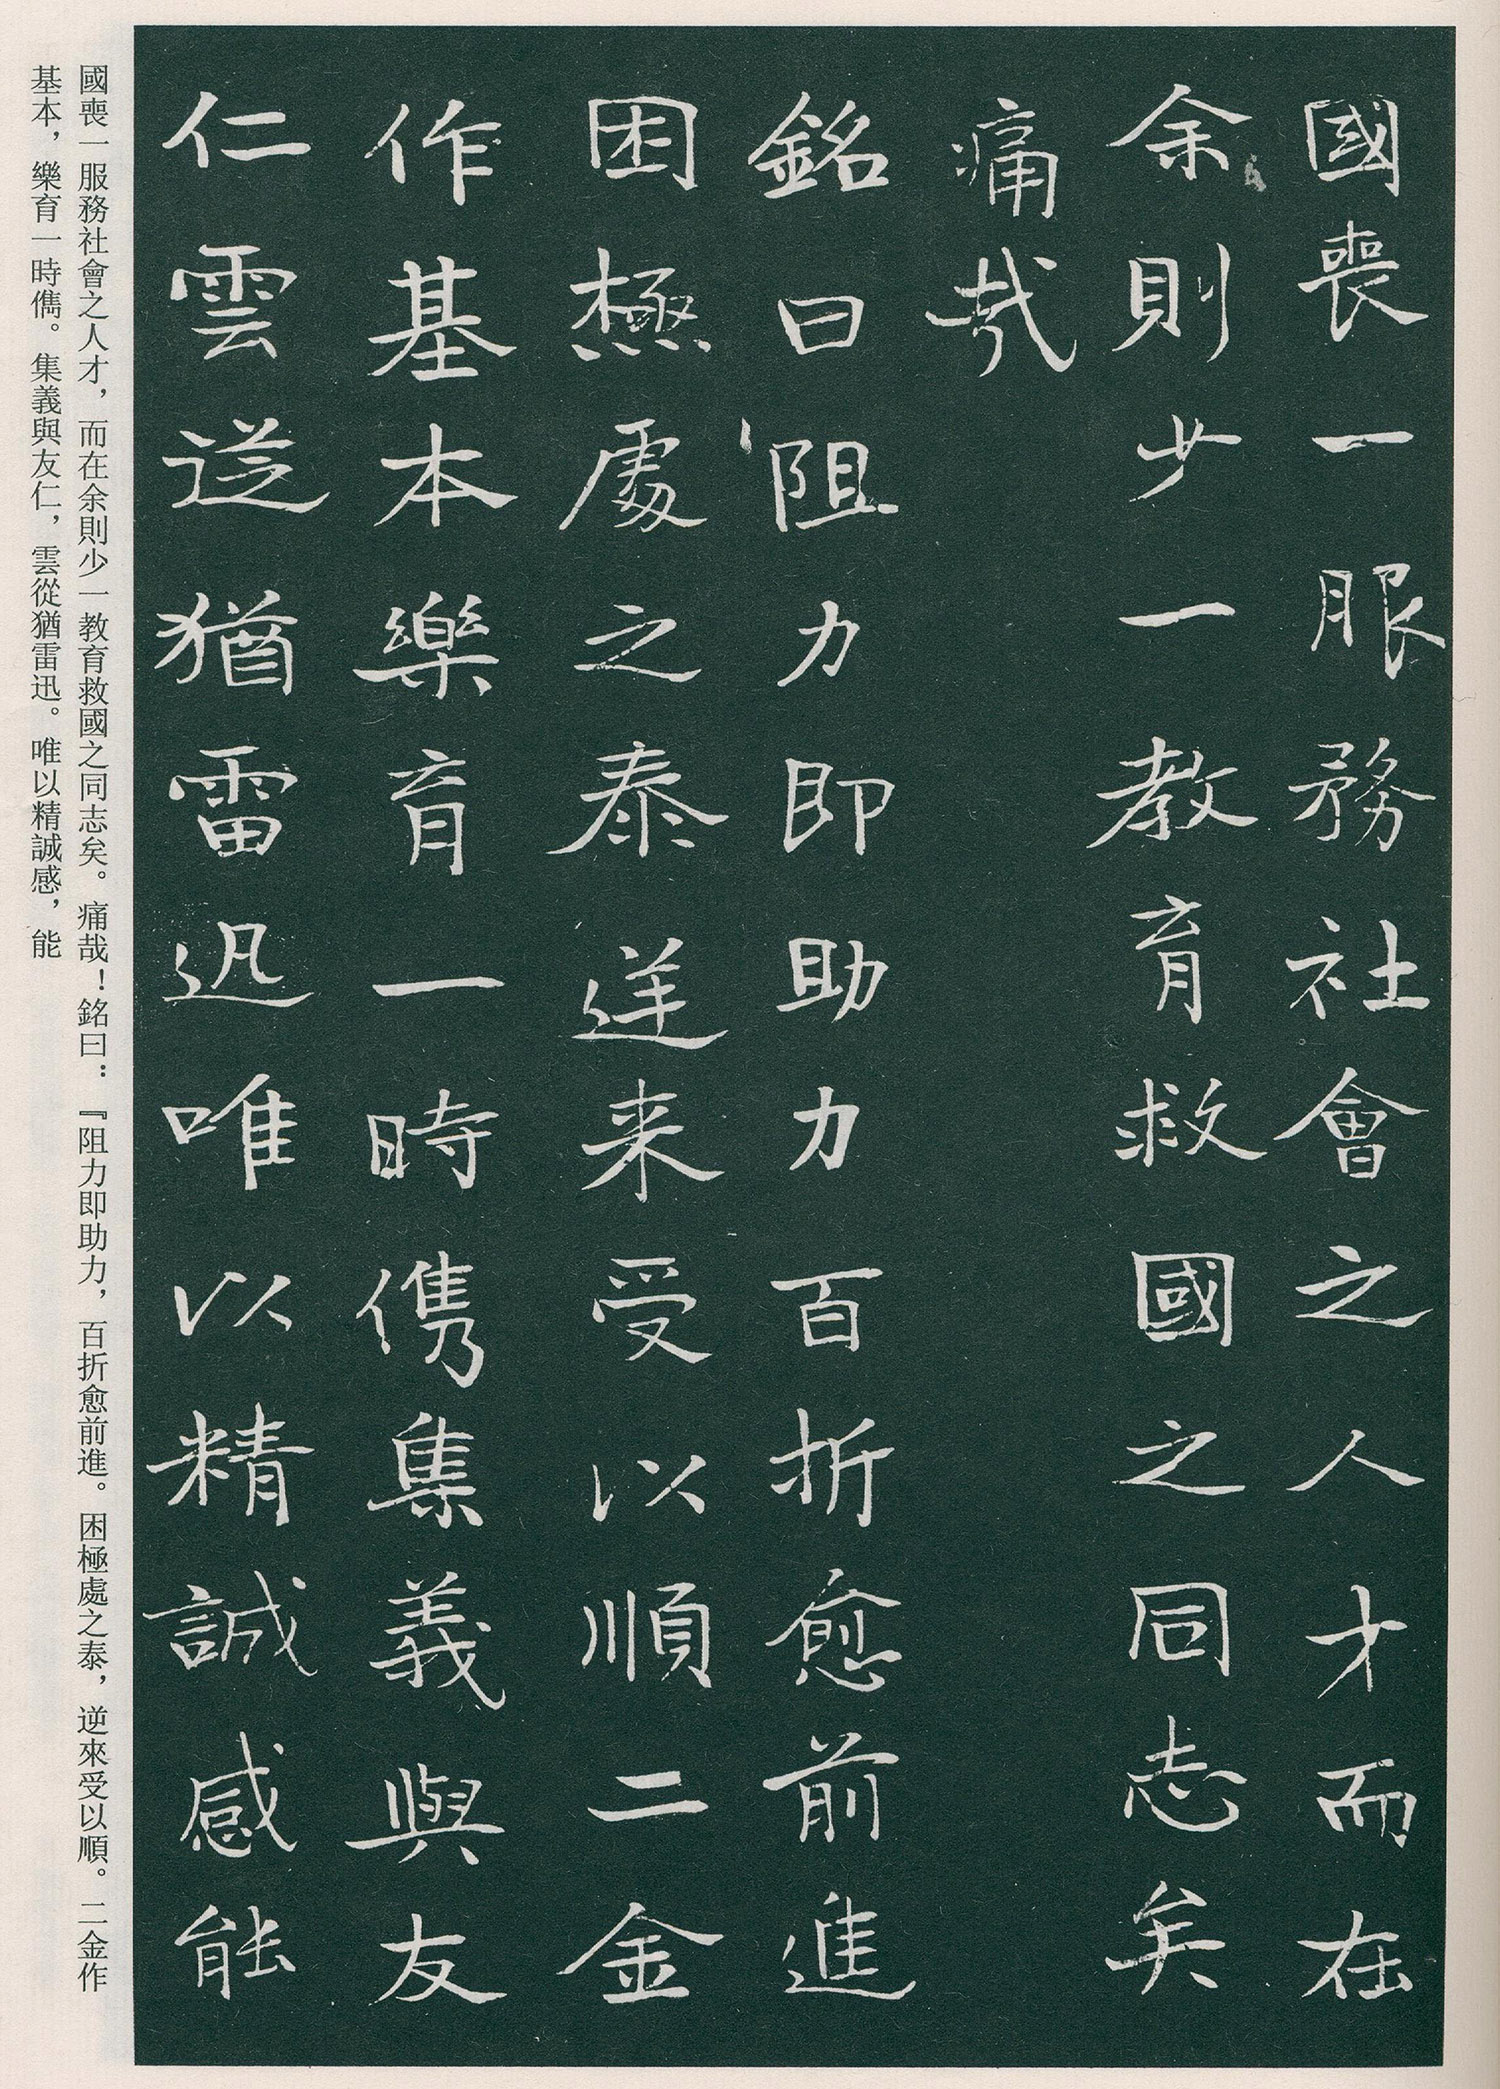 國喪一服務社會之人才而在
余則少一教育救國之同志矣
痛哉
銘曰阻力即助力百折愈前進
困極處之泰逆来受以順二金
作基本樂育一時儁集義與友
仁雲從猶雷迅唯以精誠感能
國喪一服務社會之人才，而在余則少一教育救國之同志矣。痛哉！銘曰：『阻力即助力，百折愈前進。困極處之泰，逆來受以順。二金作
基本，樂育一時儁。集義與友仁，雲從猶雷迅。唯以精誠感，能